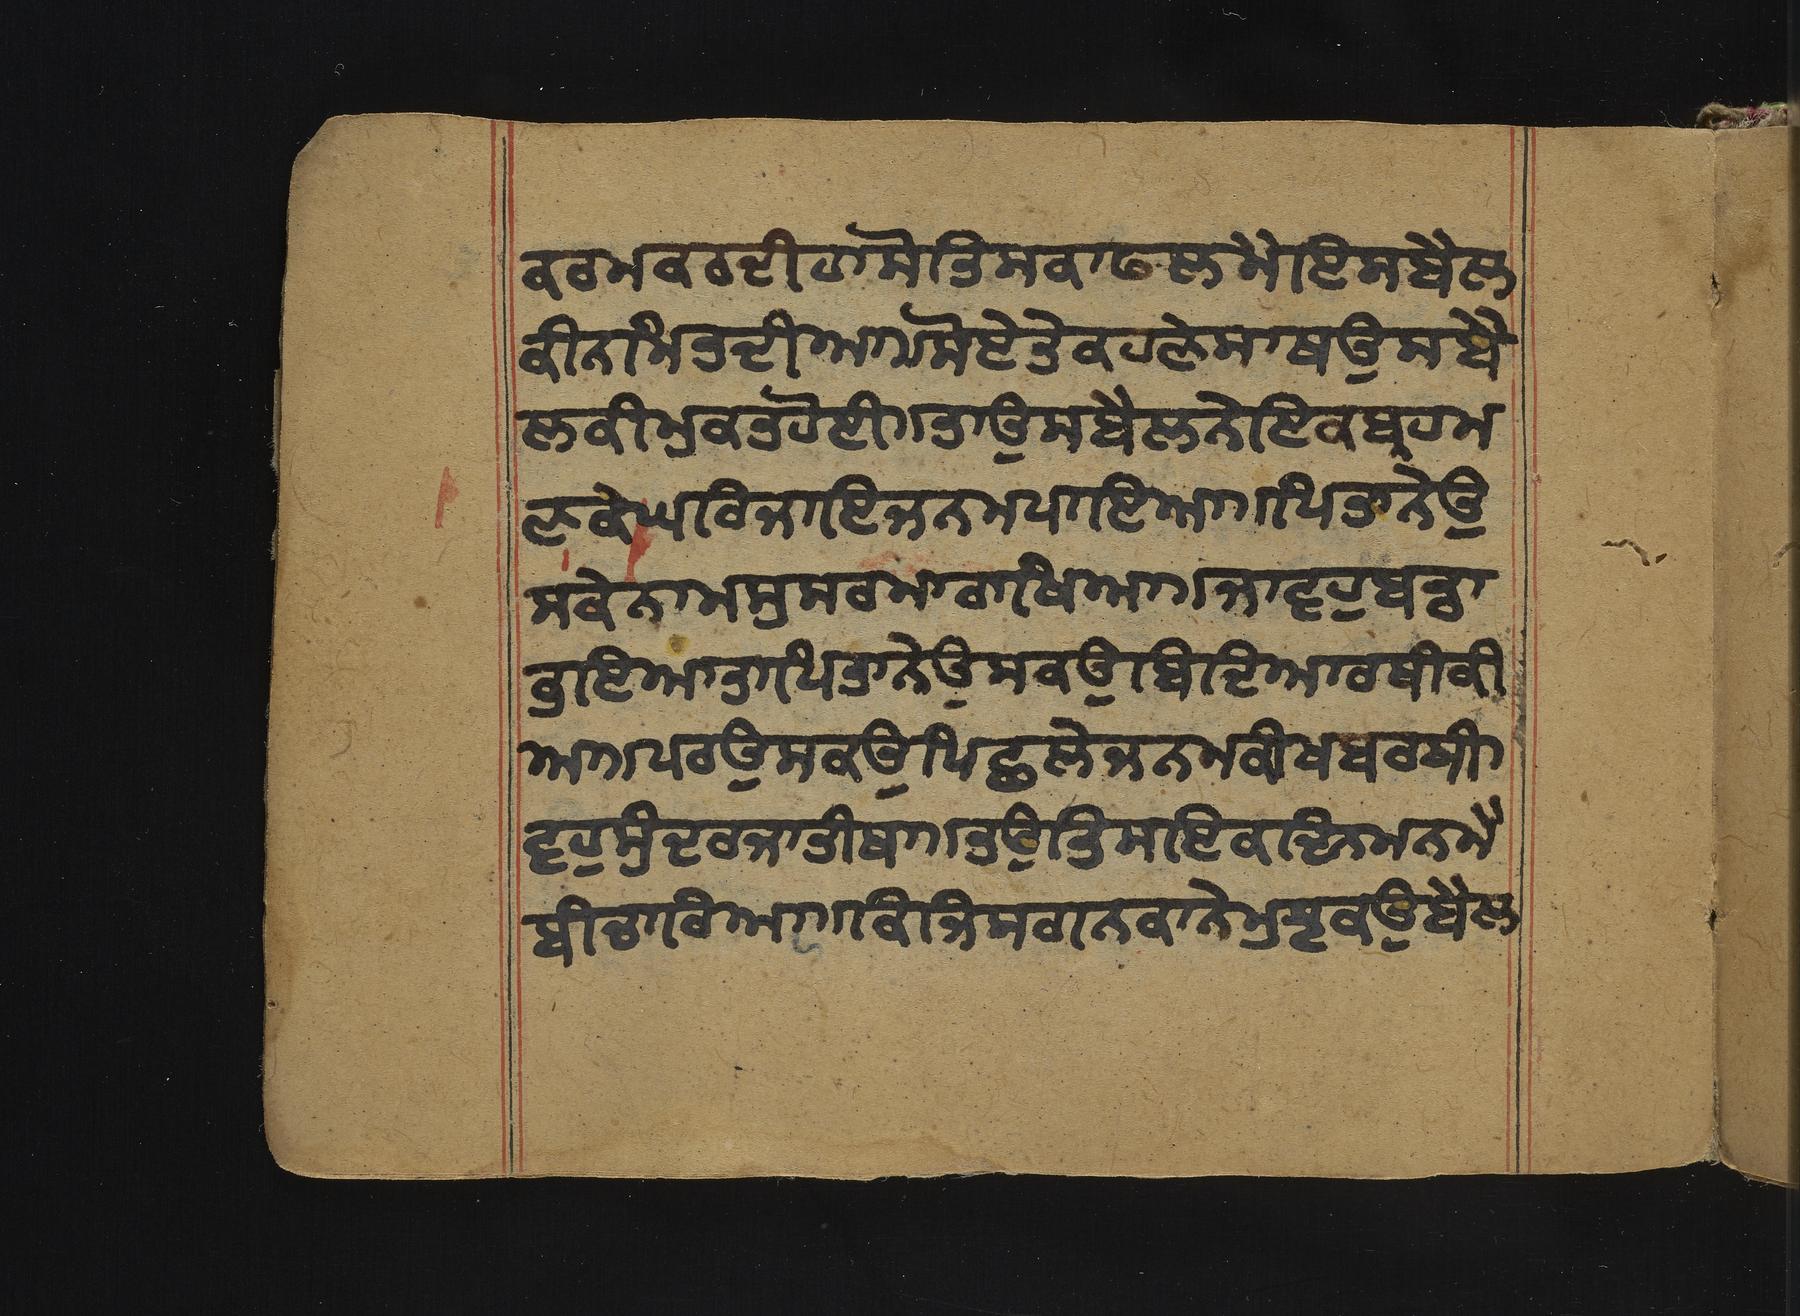 ਕਰਮਕਰਦੀਹਾਸੋਤਿਸਕਾਫਲਮੈਇਸਬੈਲ
ਕੀਨਮਿਤਦੀਆਸੋਏਤੇਕਹਣੇਸਾਥਉਸਬੈ
ਲਕੀਮੁਕਤਹੋਈ।ਤਾਉਸਬੈਲਨੇਇਕਬ੍ਰਹਮ
ਣਕੇਘਰਿਜਾਇਜਨਮਪਾਇਆ।ਪਿਤਾਨੇਉ
ਸਕੇਨਾਮਸੁਸਰਮਾਰਾਖਿਆ।ਜਾਵਹੁਬਡਾ
ਹੁਇਆਤਾਪਿਤਾਨੇਉਸਕਉਬਿਦਿਆਰਥੀਕੀ
ਆ।ਪਰਉਸਕਉਪਿਛਲੇਜਨਮਕੀਖਬਰਥੀ।
ਵਹੁਸੁੰਦਰਜਾਤੀਥਾ।ਤਉਤਿਸਇਕਦਿਨਮਨਮੈ
ਬੀਚਾਰਿਆ।ਕਿਜਿਸਗਨਕਾਨੇਮੁਝਕਉਬੈਲ